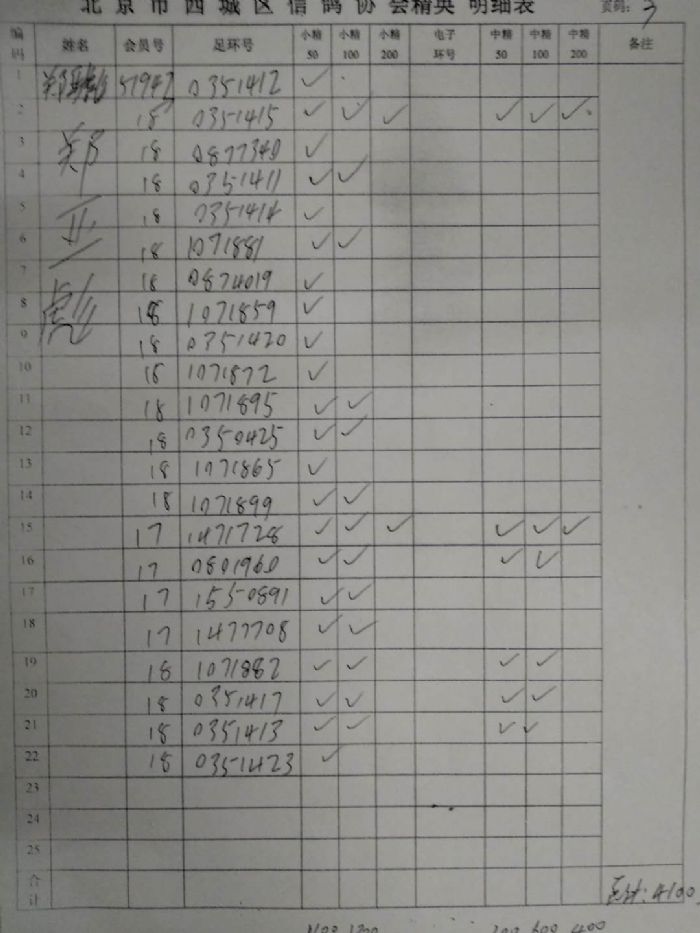 北京市西城区信鸽协会精英 明细表 页码: 3
编码 姓名 会员号 足环号 小精50 小精100 小精200 电子环号 中精50 中精100 中精200 备注
1 51942 0351412 ✓
2 18 0351415 ✓ ✓ ✓ ✓ ✓ ✓
3 郑 18 0877340 ✓
4 18 0351411 ✓ ✓
5 亚 18 0351414 ✓
6 18 1071881 ✓ ✓
7 18 0874019 ✓
8 18 1071859 ✓
9 18 0351420 ✓
10 18 1071872 ✓
11 18 1071895 ✓ ✓
12 18 0350425 ✓ ✓
13 18 1071865 ✓
14 18 1071899 ✓ ✓
15 17 1471728 ✓ ✓ ✓ ✓ ✓ ✓
16 17 0801960 ✓ ✓ ✓ ✓
17 17 1550891 ✓ ✓
18 17 1477708 ✓ ✓
19 18 1071882 ✓ ✓ ✓ ✓
20 18 0351417 ✓ ✓ ✓ ✓
21 18 0351413 ✓ ✓ ✓ ✓
22 18 0351423 ✓
23
24
25
合计 总计: 4100